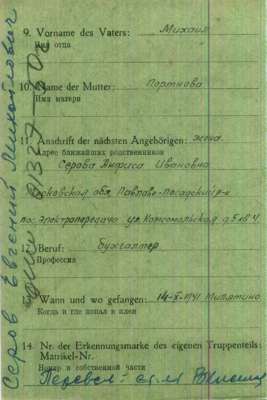 Серов Евгений Михайлович
9. Vorname des Vaters:
Михаил
Имя отца
10. Name der Mutter:
Портнова
Имя матери
11. Anschrift der nächsten Angehörigen: жена
Адрес ближайших родственников
Серова Анфиса Ивановна
Московская обл Павлово-Посадский р-н
пос. Электропередача ул Комсомольская д 5 кв 4
12. Beruf: бухгалтер
Профессия
13. Wann und wo gefangen: 1941 Милятино
Когда и где попал в плен
14. Nr. der Erkennungsmarke des eigenen Truppenteils:
Matrikel-Nr.
Номер в собственной части
Перевел: